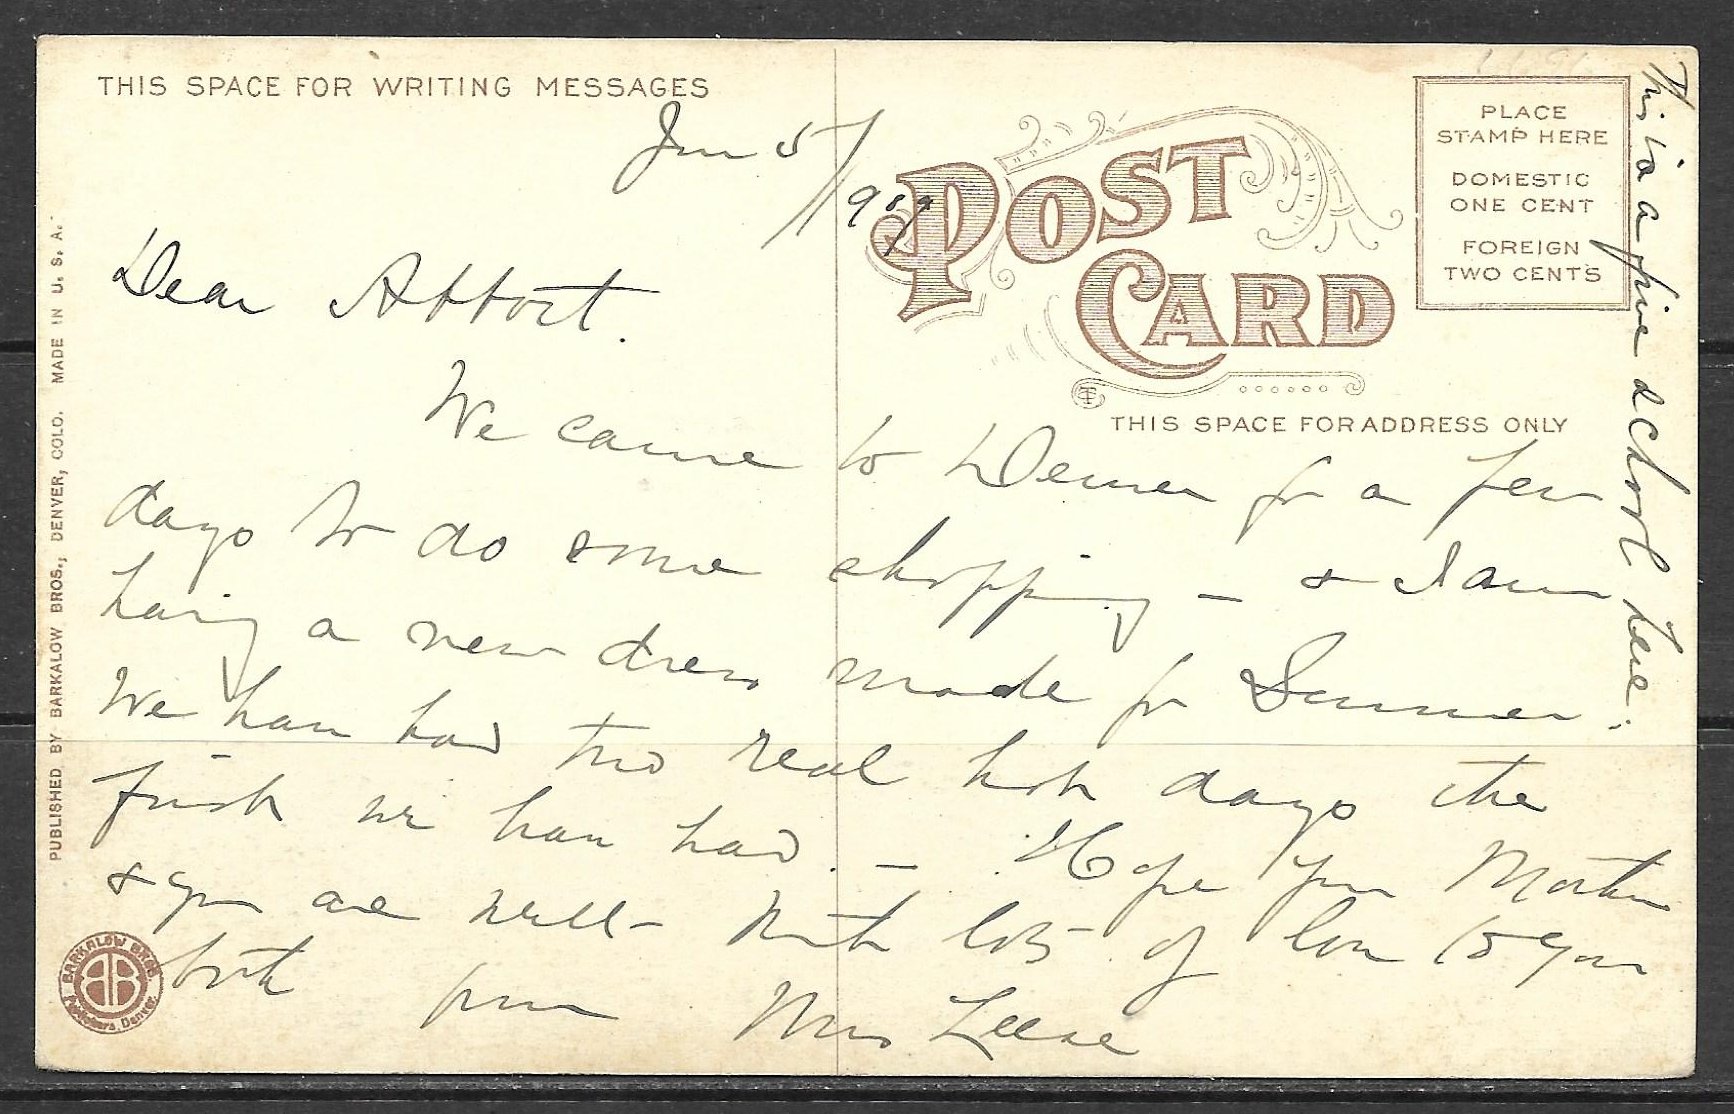 THIS SPACE FOR WRITING MESSAGES
June 5/1909
Dear Abbott.
We came to Denver for a few
days to do some shopping — & I am
having a new dress made for Summer.
We have had two real hot days the
first we have had. — Hope your Mother
& you are well — With lots of love to you
both from Mrs Leese
This is a fine school here.
POST
CARD
PLACE
STAMP HERE
DOMESTIC
ONE CENT
FOREIGN
TWO CENTS
THIS SPACE FOR ADDRESS ONLY
PUBLISHED BY BARKALOW BROS., DENVER, COLO. MADE IN U. S. A.
BARKALOW BROS.
Publishers, Denver.